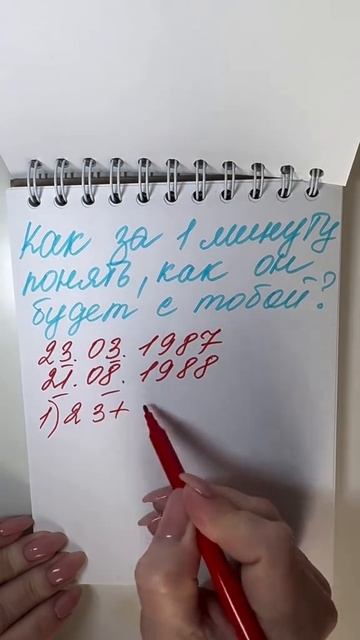 Как за 1 минуту
понять, как он
будет с тобой?
23. 03. 1987
21. 08. 1988
1) 23+